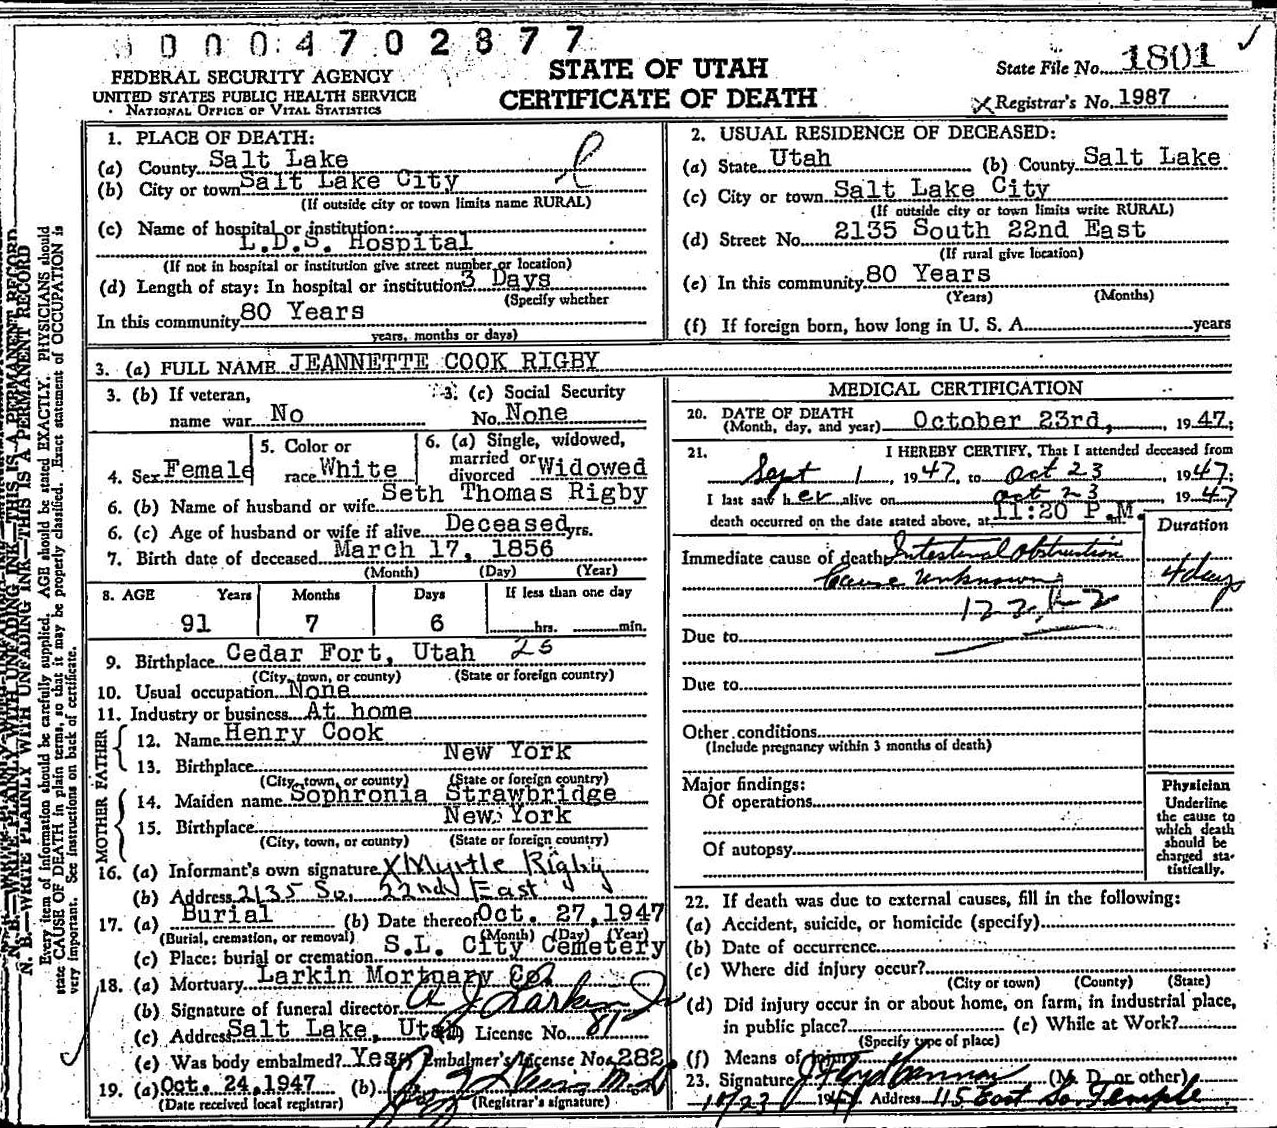 0004702877
FEDERAL SECURITY AGENCY
UNITED STATES PUBLIC HEALTH SERVICE
NATIONAL OFFICE OF VITAL STATISTICS
STATE OF UTAH
CERTIFICATE OF DEATH
State File No. 1801
Registrar's No. 1987
1. PLACE OF DEATH:
(a) County Salt Lake
(b) City or town Salt Lake City
(If outside city or town limits name RURAL)
(c) Name of hospital or institution:
L.D.S. Hospital
(If not in hospital or institution give street number or location)
(d) Length of stay: In hospital or institution 3 Days
(Specify whether
In this community 80 Years
years, months or days)
2. USUAL RESIDENCE OF DECEASED:
(a) State Utah (b) County Salt Lake
(c) City or town Salt Lake City
(If outside city or town limits write RURAL)
(d) Street No. 2135 South 22nd East
(If rural give location)
(e) In this community 80 Years
(Years) (Months)
(f) If foreign born, how long in U. S. A. years
3. (a) FULL NAME JEANNETTE COOK RIGBY
3. (b) If veteran,
name war No
3. (c) Social Security
No. None
4. Sex Female
5. Color or
race White
6. (a) Single, widowed,
married or
divorced Widowed
6. (b) Name of husband or wife Seth Thomas Rigby
6. (c) Age of husband or wife if alive Deceased yrs.
7. Birth date of deceased March 17, 1856
(Month) (Day) (Year)
8. AGE Years Months Days If less than one day
91 7 6 hrs. min.
9. Birthplace Cedar Fort, Utah 25
(City, town, or county) (State or foreign country)
10. Usual occupation None
11. Industry or business At home
FATHER
12. Name Henry Cook
13. Birthplace New York
(City, town, or county) (State or foreign country)
MOTHER
14. Maiden name Sophronia Strawbridge
15. Birthplace New York
(City, town, or county) (State or foreign country)
16. (a) Informant's own signature X Myrtle Rigby
(b) Address 2135 So. 22nd East
17. (a) Burial (b) Date thereof Oct. 27, 1947
(Burial, cremation, or removal) (Month) (Day) (Year)
(c) Place: burial or cremation S.L. City Cemetery
18. (a) Mortuary Larkin Mortuary Co.
(b) Signature of funeral director A J Larkin Jr
(c) Address Salt Lake, Utah (d) License No. 81
(e) Was body embalmed? Yes Embalmer's License No. 282
19. (a) Oct. 24, 1947 (b) M.D.
(Date received local registrar) (Registrar's signature)
MEDICAL CERTIFICATION
20. DATE OF DEATH
(Month, day, and year) October 23rd, 1947;
21. I HEREBY CERTIFY, That I attended deceased from
Sept 1, 1947, to Oct 23 1947;
I last saw her alive on Oct 23 1947
death occurred on the date stated above, at 11:20 P.M.
Duration
Immediate cause of death Intestinal Obstruction
Cause Unknown 4 days
Due to
Due to
Other conditions
(Include pregnancy within 3 months of death)
Major findings:
Of operations
Of autopsy
Physician
Underline
the cause to
which death
should be
charged sta-
tistically.
22. If death was due to external causes, fill in the following:
(a) Accident, suicide, or homicide (specify)
(b) Date of occurrence
(c) Where did injury occur?
(City or town) (County) (State)
(d) Did injury occur in or about home, on farm, in industrial place,
in public place? (e) While at Work?
(Specify type of place)
(f) Means of injury
23. Signature J Floyd Cannon (M. D. or other)
10/23 1947 Address 115 East So. Temple
N. B.—WRITE PLAINLY WITH UNFADING INK—THIS IS A PERMANENT RECORD
Every item of information should be carefully supplied. AGE should be stated EXACTLY. PHYSICIANS should
state CAUSE OF DEATH in plain terms, so that it may be properly classified. Exact statement of OCCUPATION is
very important. See instructions on back of certificate.